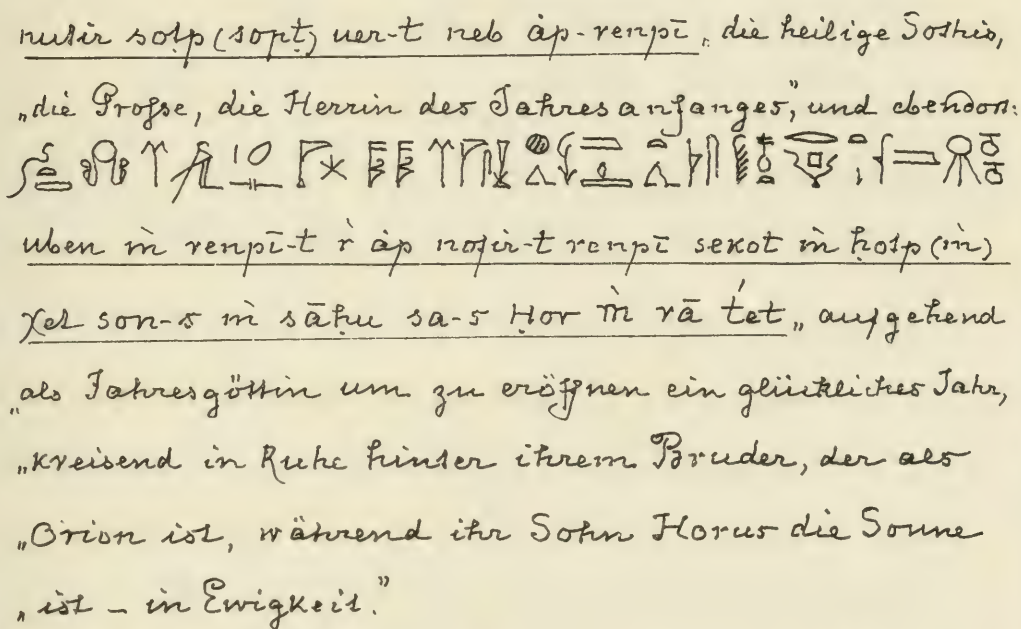 nutir sotp (sopt) uer-t neb áp-renpī „die heilige Sothis,
„die Grosse, die Herrin des Jahresanfanges,” und ebendort:
uben ṁ renpī-t ŕ áp nofir-t renpī sekot ṁ ḥotp (ṁ)
χet son-s ṁ sāḥu sa-s Ḥor ṁ rā t́et „aufgehend
„als Jahresgöttin um zu eröffnen ein glückliches Jahr,
„kreisend in Ruhe hinter ihrem Bruder, der als
„Orion ist, während ihr Sohn Horus die Sonne
„ist – in Ewigkeit.”